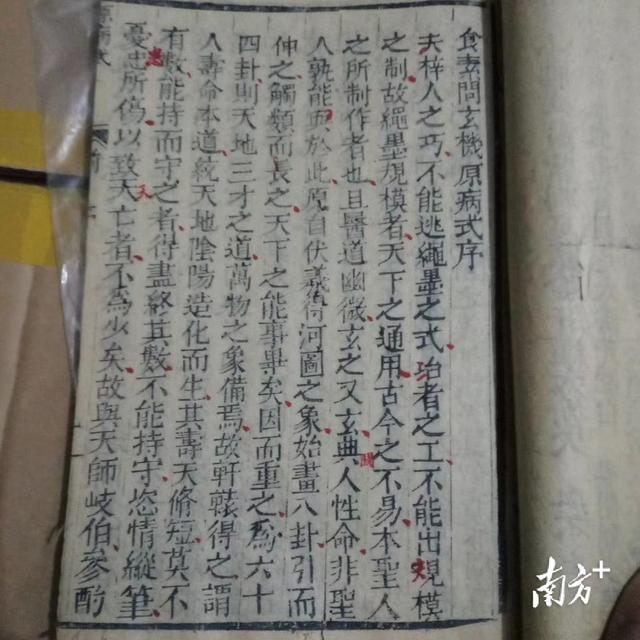 食素問玄機原病式序
夫梓人之巧不能逃繩墨之式陶者之工不能出規模
之制故繩墨規模者天下之通用古今之不易本聖人
之所制作者也且醫道幽微玄之又玄典人性命非聖
人孰能與於此原自伏羲得河圖之象始畫八卦引而
伸之觸類而長之天下之能事畢矣因而重之為六十
四卦則天地三才之道萬物之象備焉故軒轅得之謂
人壽命本道統天地陰陽造化而生其壽夭脩短莫不
有數能持而守之者得盡終其數不能持守恣情縱
憂患所傷以致夭亡者不為少矣故與天師岐伯參酌
南方+